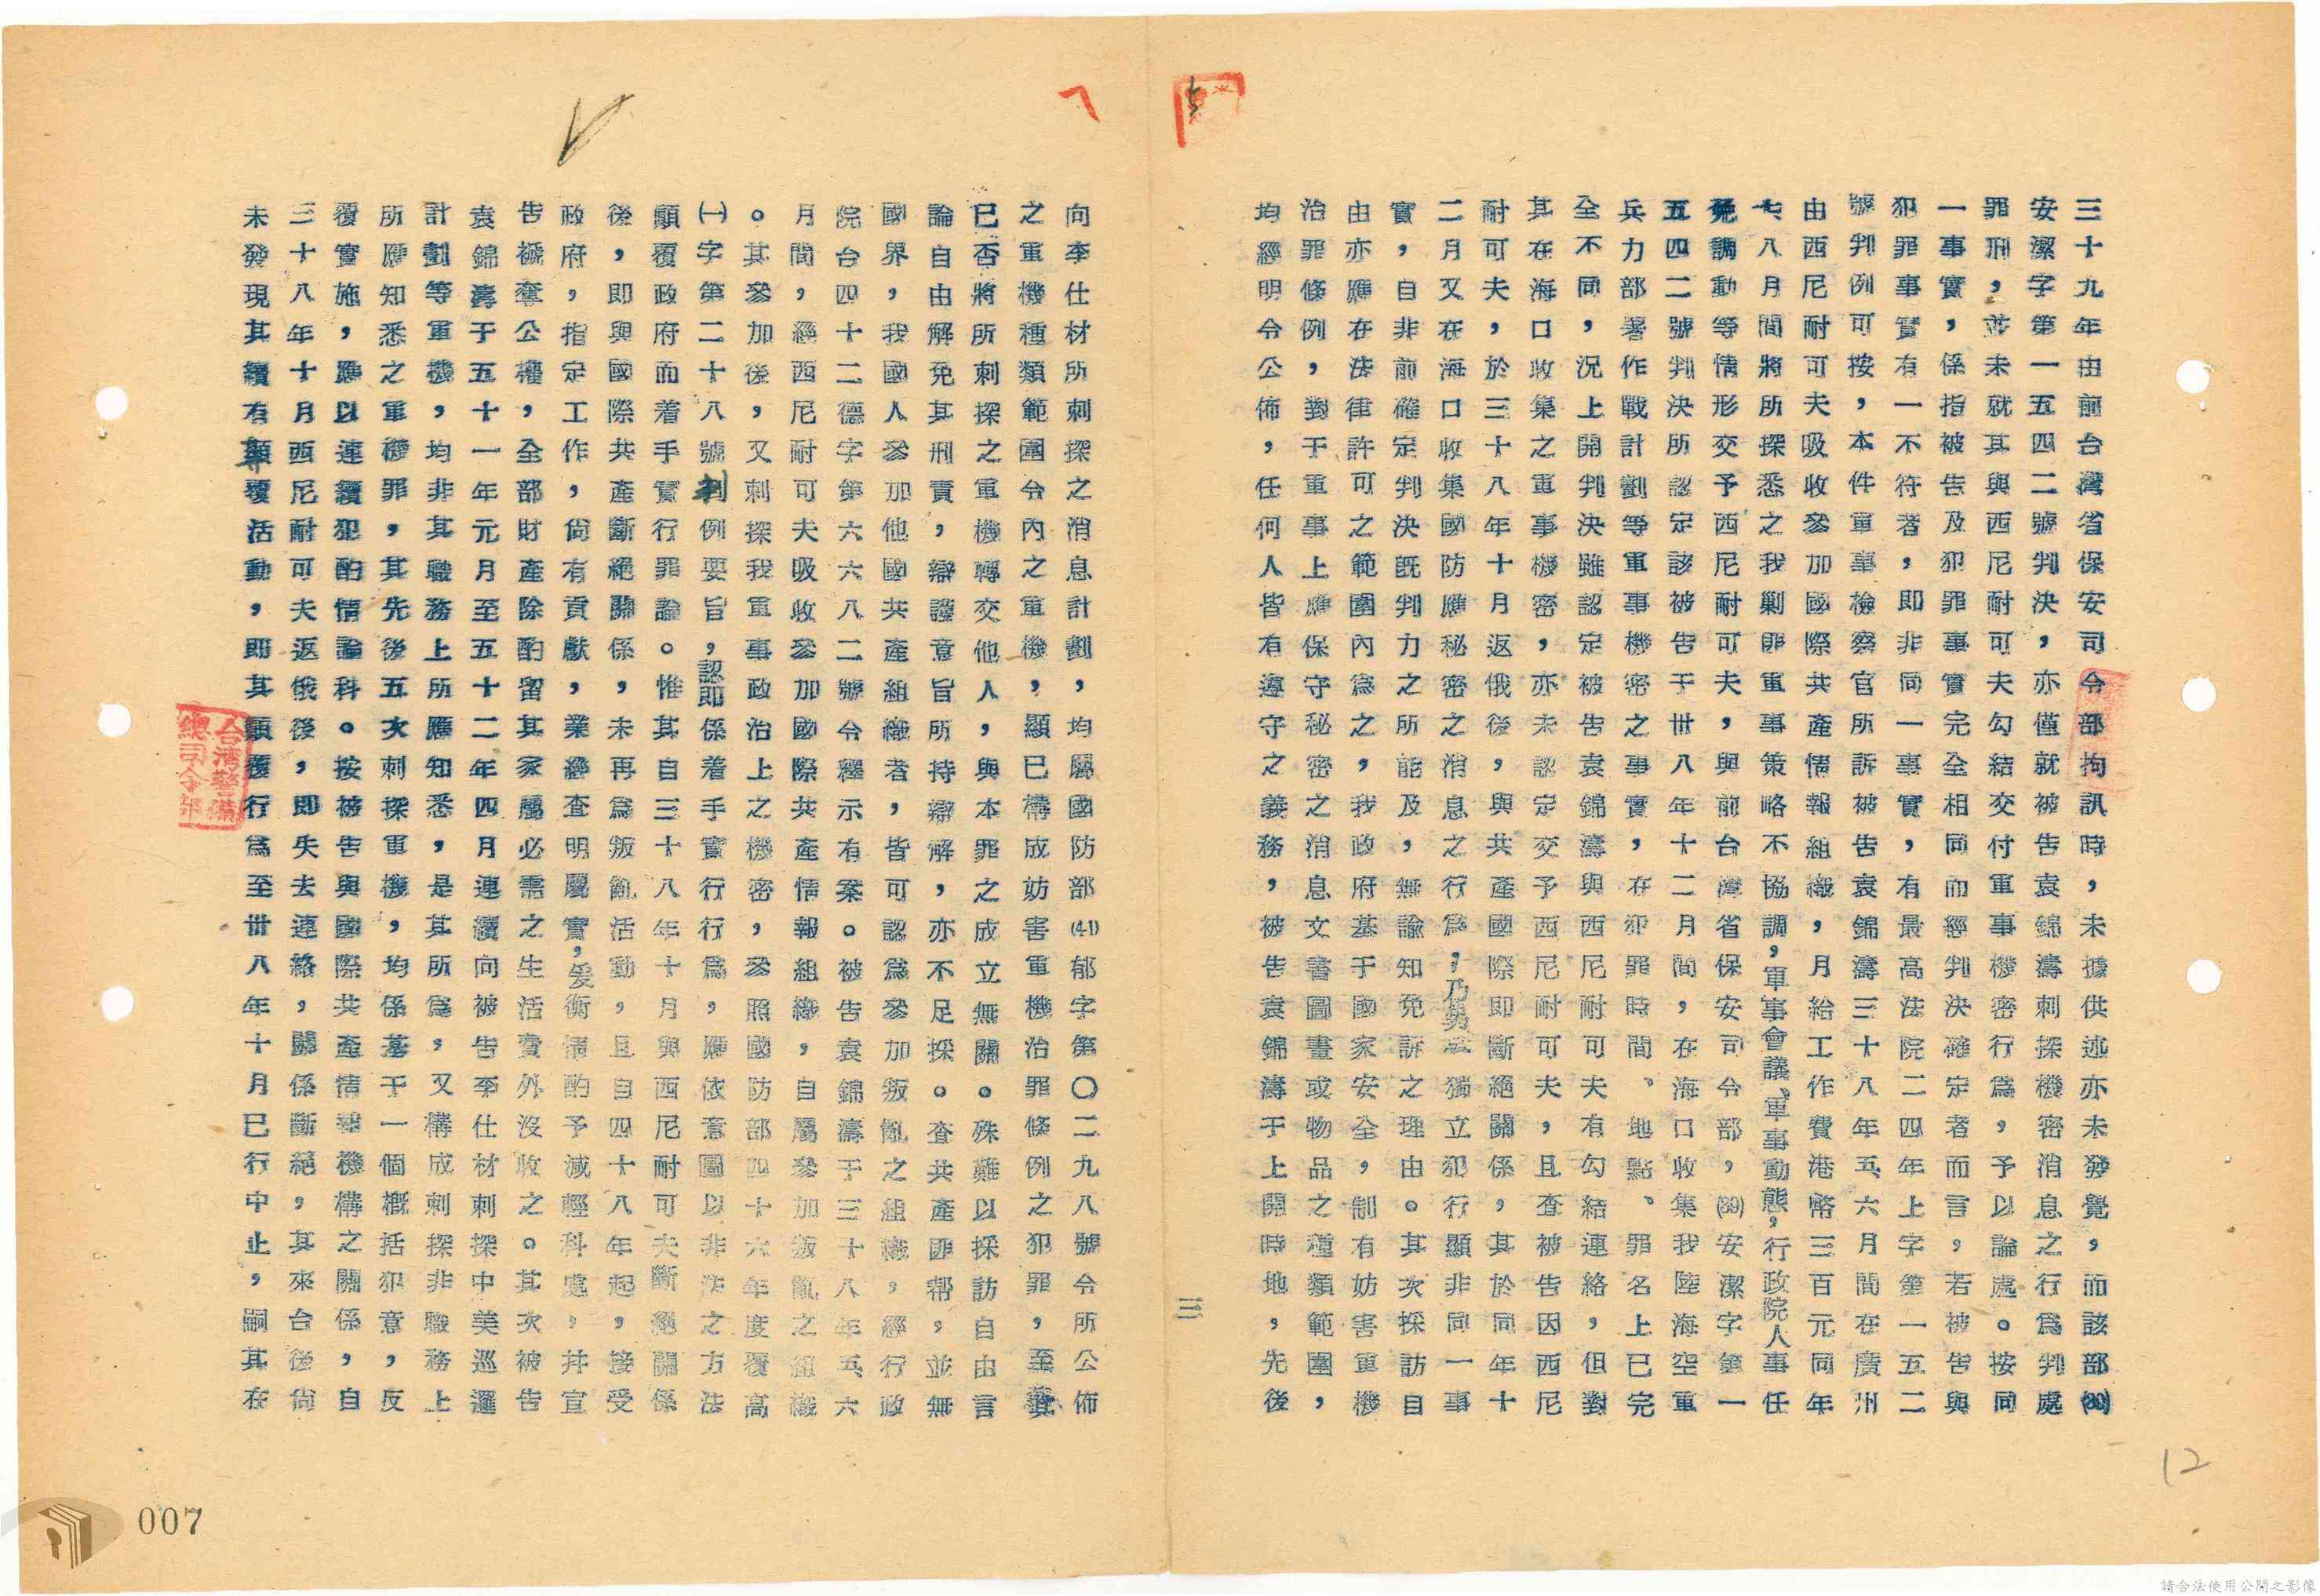 三十九年由前台灣省保安司令部拘訊時，未據供述亦未發覺，而該部(39)
安潔字第一五四二號判決，亦僅就被告袁錦濤刺探機密消息之行為判處
罪刑，並未就其與西尼耐可夫勾結交付軍事機密行為，予以論處。按同
一事實，係指被告及犯罪事實完全相同而經判決確定者而言，若被告與
犯罪事實有一不符者，即非同一事實，有最高法院二四年上字第一五二二
號判例可按，本件軍事檢察官所訴被告袁錦濤三十八年五、六月間在廣州
由西尼耐可夫吸收參加國際共產情報組織，月給工作費港幣三百元同年
七八月間將所探悉之我剿匪軍事策略不協調，軍事會議、軍事動態，行政院人事任
免調動等情形交予西尼耐可夫，與前台灣省保安司令部，(39)安潔字第一
五四二號判決所認定該被告于卅八年十二月間，在海口收集我陸海空軍
兵力部署作戰計劃等軍事機密之事實，在犯罪時間。地點、罪名上已完
全不同，況上開判決雖認定被告袁錦濤與西尼耐可夫有勾結連絡，但對
其在海口收集之軍事機密，亦未認定交予西尼耐可夫，且查被告因西尼
耐可夫，於三十八年十月返俄後，與共產國際即斷絕關係，其於同年十
二月又在海口收集國防應秘密之消息之行為，乃另一獨立犯行顯非同一事
實，自非前確定判決既判力之所能及，無諭知免訴之理由。其次採訪自
由亦應在法律許可之範圍內為之，我政府基于國家安全，制有妨害軍機
治罪條例，對于軍事上應保守秘密之消息文書圖畫或物品之種類範圍，
均經明令公佈，任何人皆有遵守之義務，被告袁錦濤于上開時地，先後
三
向李仕材所刺探之消息計劃，均屬國防部(41)郁字第〇二九八號令所公佈
之軍機種類範圍令內之軍機，顯已構成妨害軍機治罪條例之犯罪，至其
已否將所刺探之軍機轉交他人，與本罪之成立無關。殊難以採訪自由言
論自由解免其刑責，辯護意旨所持辯解，亦不足採。查共產匪幫，並無
國界，我國人參加他國共產組織者，皆可認為參加叛亂之組織，經行政
院台四十二德字第六六八二號令釋示有案。被告袁錦濤于三十八年五六
月間，經西尼耐可夫吸收參加國際共產情報組織，自屬參加叛亂之組織
。其參加後，又刺探我軍事政治上之機密，參照國防部四十六年度覆高
㈠字第二十八號判例要旨，認即係着手實行行為，應依意圖以非法之方法
顛覆政府而着手實行罪論。惟其自三十八年十月與西尼耐可夫斷絕關係
後，即與國際共產斷絕關係，未再為叛亂活動，且自四十八年起，接受
政府，指定工作，尚有貢獻，業經查明屬實，爰衡情酌予減輕科處，并宣
告褫奪公權，全部財產除酌留其家屬必需之生活費外沒收之。其次被告
袁錦濤于五十一年元月至五十二年四月連續向被告李仕材刺探中美巡邏
計劃等軍機，均非其職務上所應知悉，是其所為，又構成刺探非職務上
所應知悉之軍機罪，其先後五次刺探軍機，均係基于一個概括犯意，反
覆實施，應以連續犯酌情論科。按被告與國際共產情報機構之關係，自
三十八年十月西尼耐可夫返俄後，即失去連絡，關係斷絕，其來台後尚
未發現其續有顛覆活動，即其顛覆行為至卅八年十月已行中止，嗣其在
台灣警備總司令部
12
007
請合法使用公開之影像